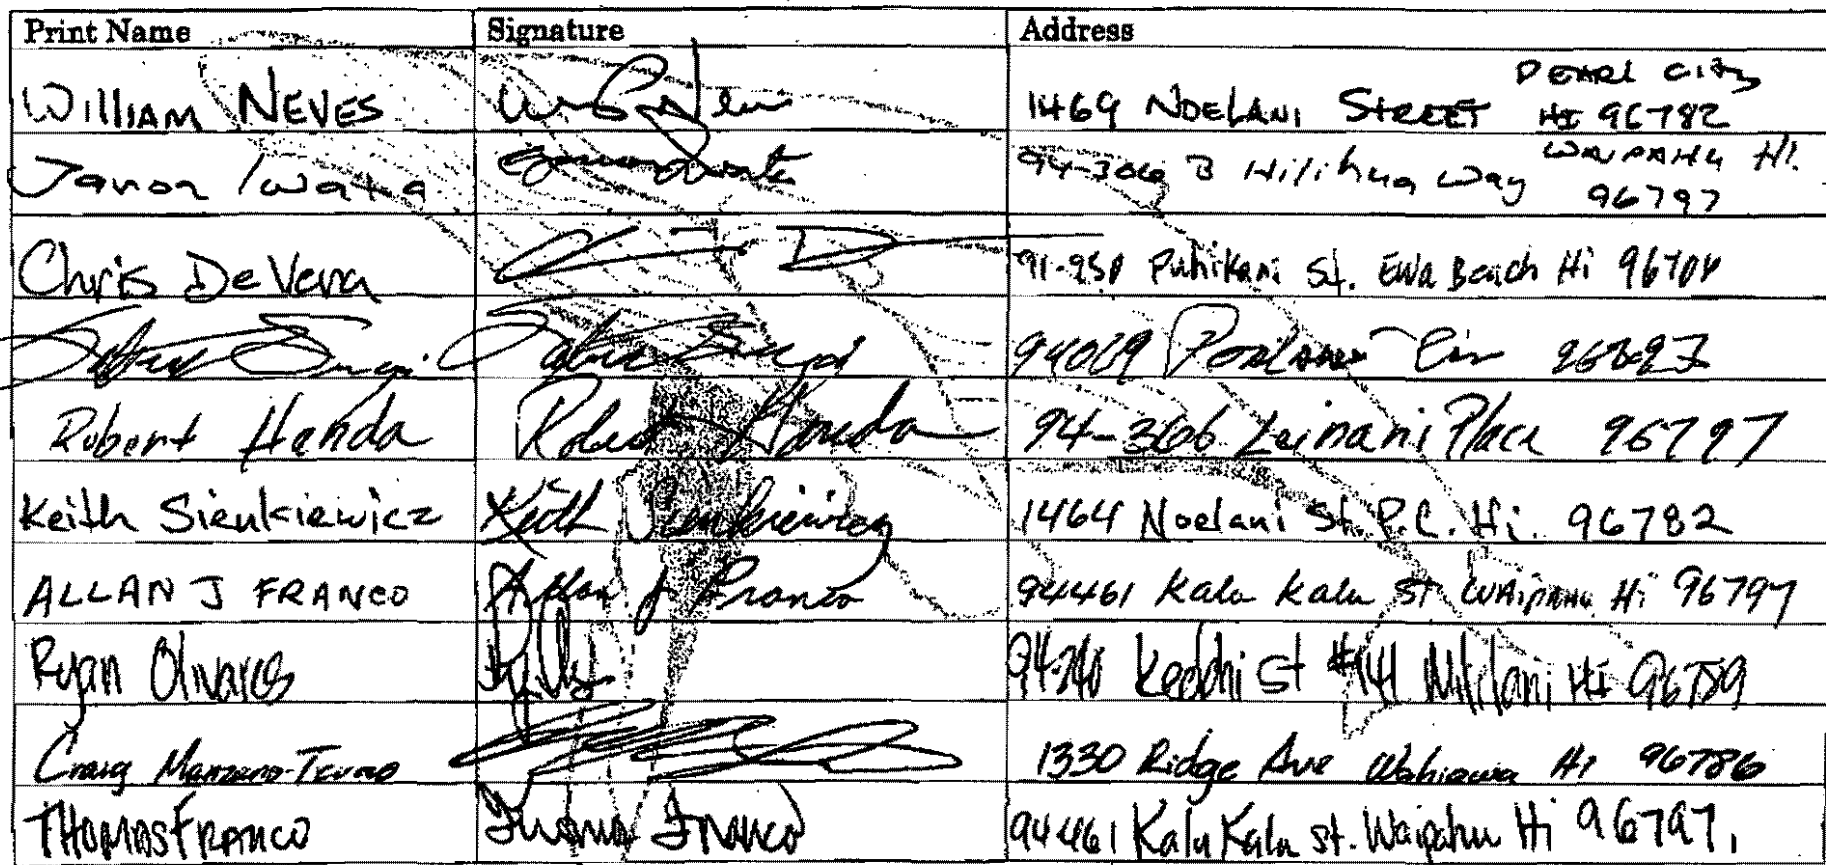 Print Name Signature Address
WILLIAM NEVES 1469 NOELANI STREET PEARL CITY HI 96782
Iwata 94-306 B Hilihua Way WAIPAHU HI. 96797
Chris DeVera 91-950 Puhikani St. Ewa Beach Hi 96706
Robert Honda Robert Honda 94-366 Leinani Place 96797
Keith Sienkiewicz Keith Sienkiewicz 1464 Noelani St. P.C. Hi. 96782
ALLAN J FRANCO Allan J Franco 94461 Kalu Kalu ST WAIPAHU Hi 96797
Ryan Olivares St #141 Mililani Hi 96789
Craig 1330 Ridge Ave Wahiawa Hi 96786
THOMAS FRANCO Thomas Franco 94461 Kalu Kalu st. Waipahu Hi 96797